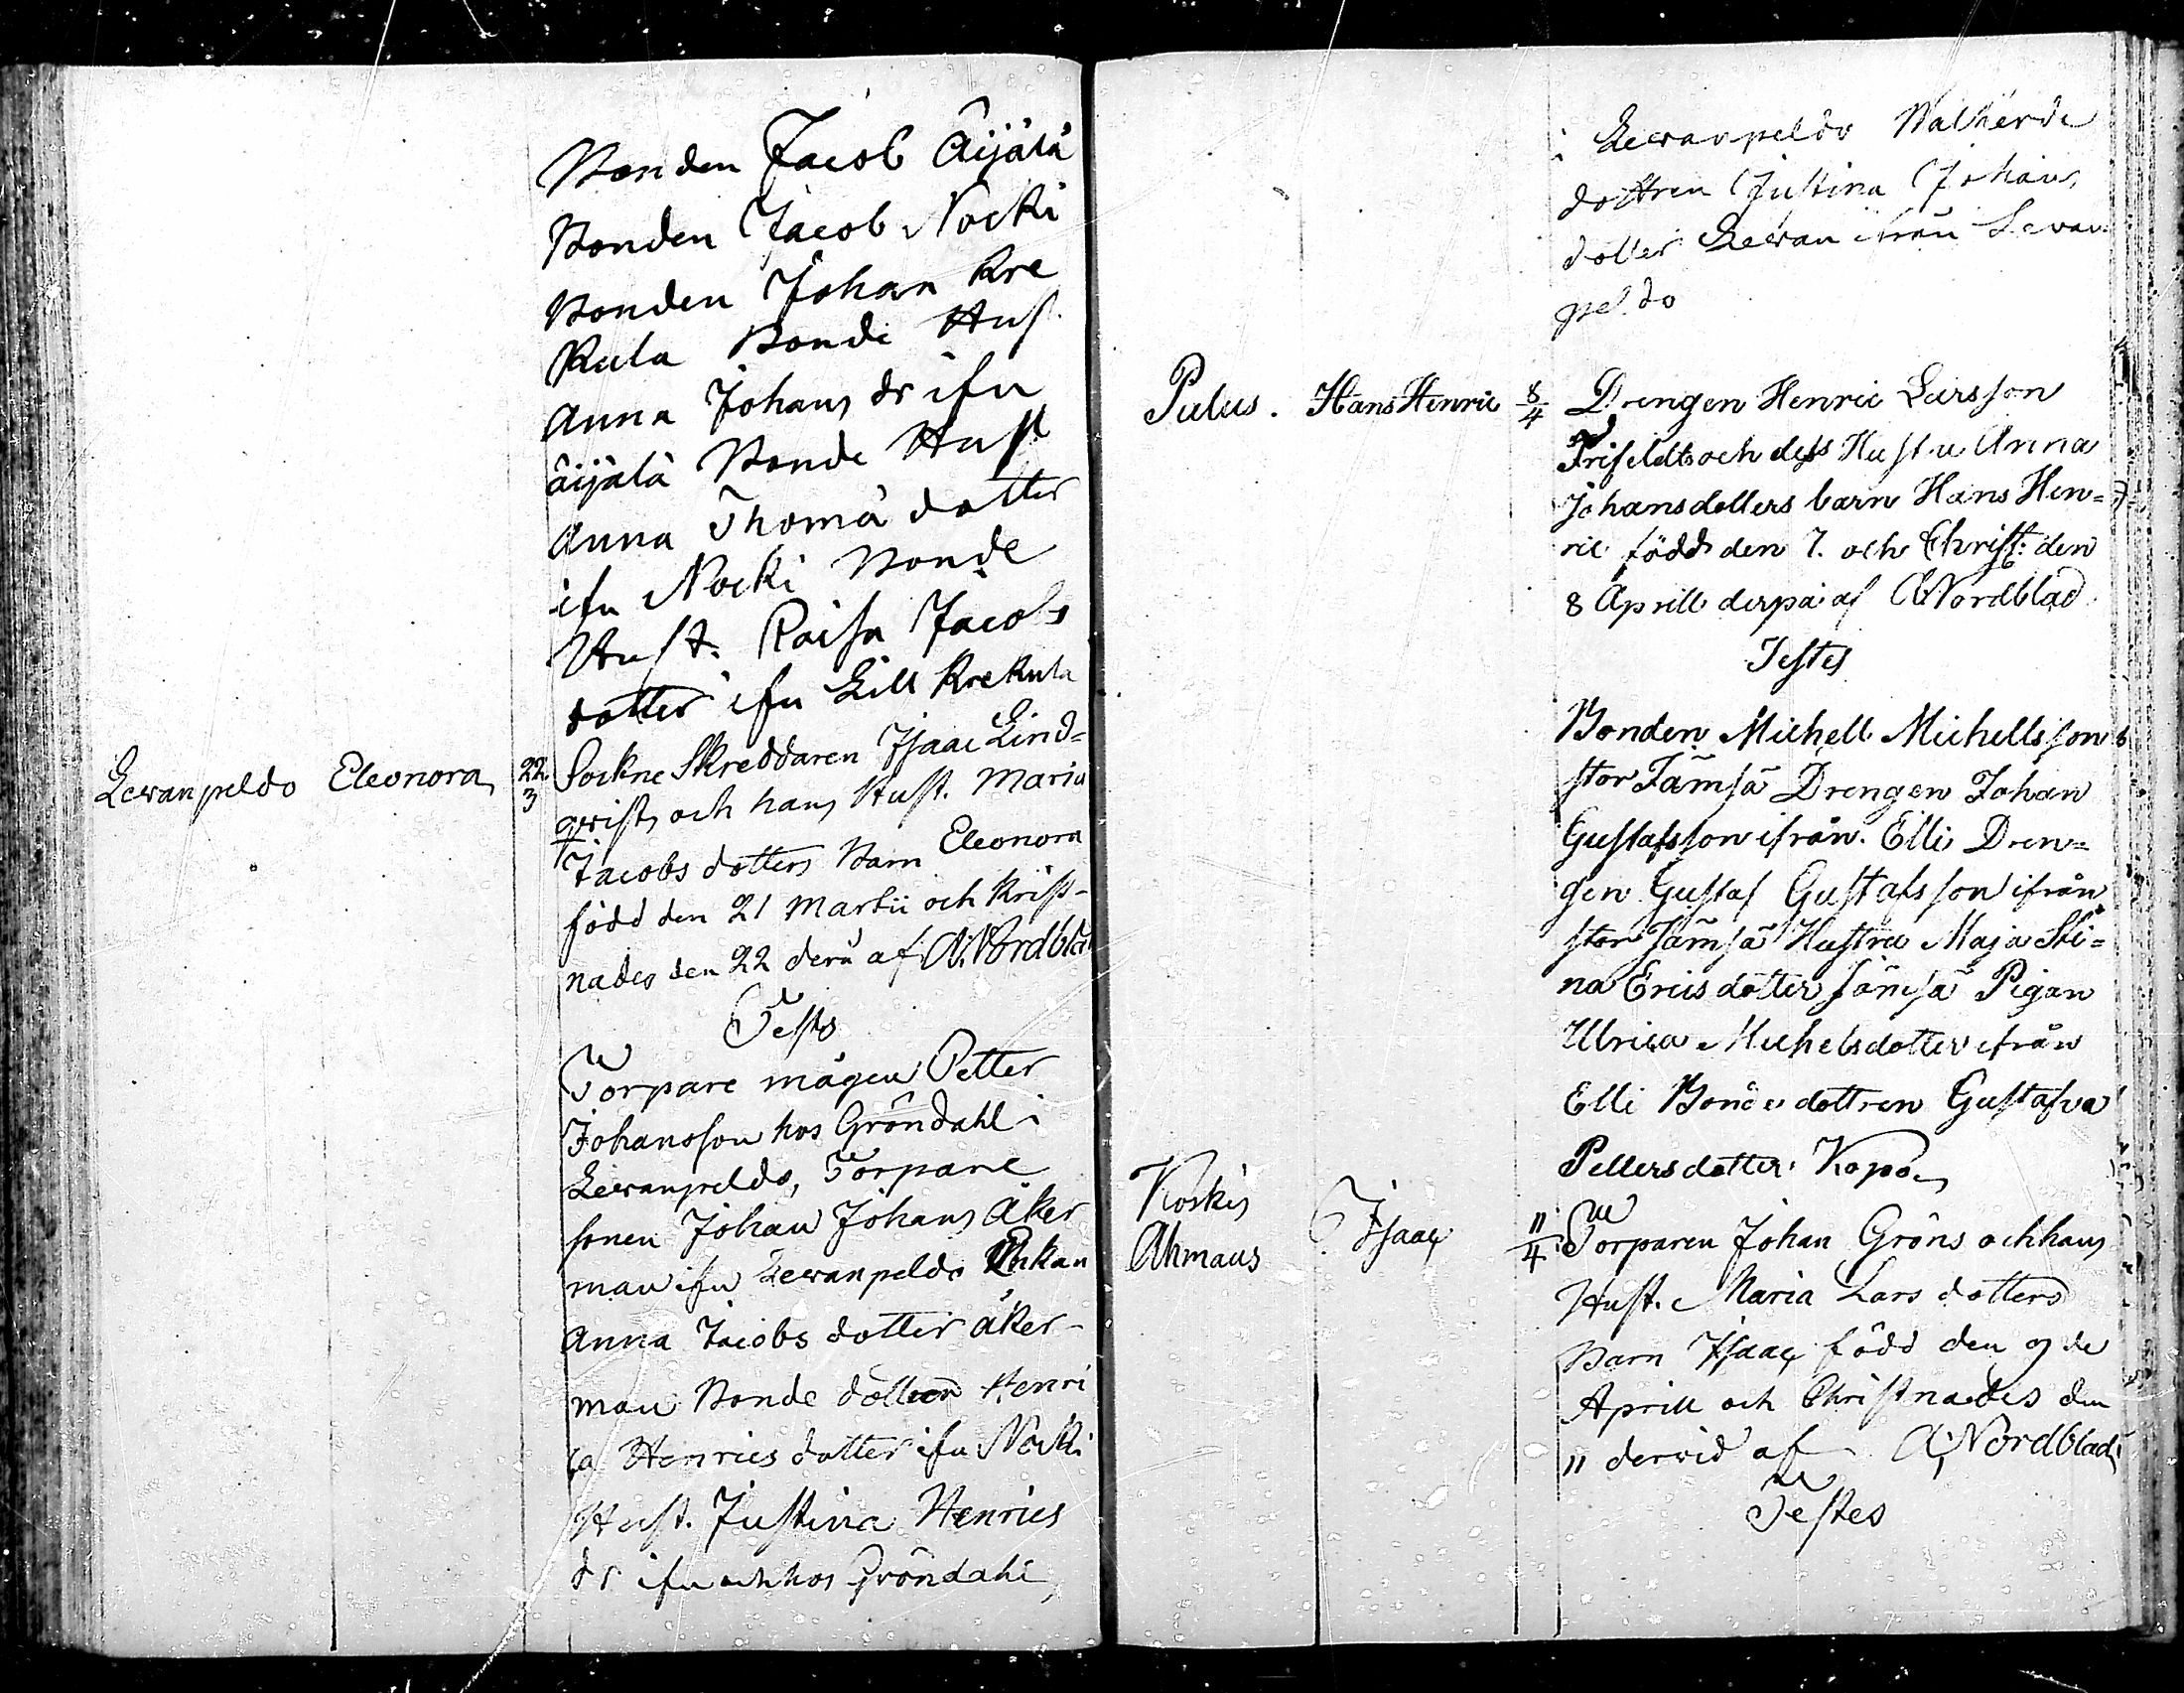 Bonden Jacob Äijälä
Bonden Jacob Nocki
Bonden Johan Kre
Kula Bonde Hust
Anna Johans dr ifn
äijälä Bonde Hust
Anna Thomä dotter
ifn Nocki Bonde
Hust. Kaisa Jacobs
dotter ifn Lill Krekula
Lewanpeldo Eleonora 22/3 Sockne Skreddaren Isaac Lind=
qvists och hans Hust. Maria
Jacobs dotters Barn Eleonora
född den 21 Martii och Krist-
nades den 22 derå af A. Nordblad
Testes
Torpare mågen Petter
Johansson hos Gröndahl i
Lewanpeldo, Torpare
sonen Johan Johans Åker
man ifn Lewanpeldo Enkan
Anna Jacobs dotter åker-
man Bonde dottren Henri
ca Henrics dotter ifn Nocki
Hust. Justina Henrics
dr ifn och hos Gröndahl,
i Lewanpeldo
dottren Justina Johans
dotter Lewan ifrån Lewan
peldo
Pulus. Hans Henric 8/4 Drengen Henric Larsson
Frifeldts och dess Hustru Anna
Johansdotters barn Hans Hen=
ric född den 7. och Christ: den
8 Aprill derpå af A Nordblad
Testes
Bonden Michell Michellsson
stor Jämsä Drengen Johan
Gustafsson ifrån Elli Dren=
gen Gustaf Gustafsson ifrån
stor Jämsä Hustru Maja Sti=
na Ericsdotter Jämsä Pigan
Ulrica Michelsdotter ifrån
Elli Bonde dottren Gustafva
Pettersdotter Kopo
Koskis Ahmaus Isaac 11/4 Torparen Johan Gröns och hans
Hust. Maria Lars dotters
Barn Isaac född den 9 de
Aprill och Christnades den
11 dervid af A. Nordblad
Testes